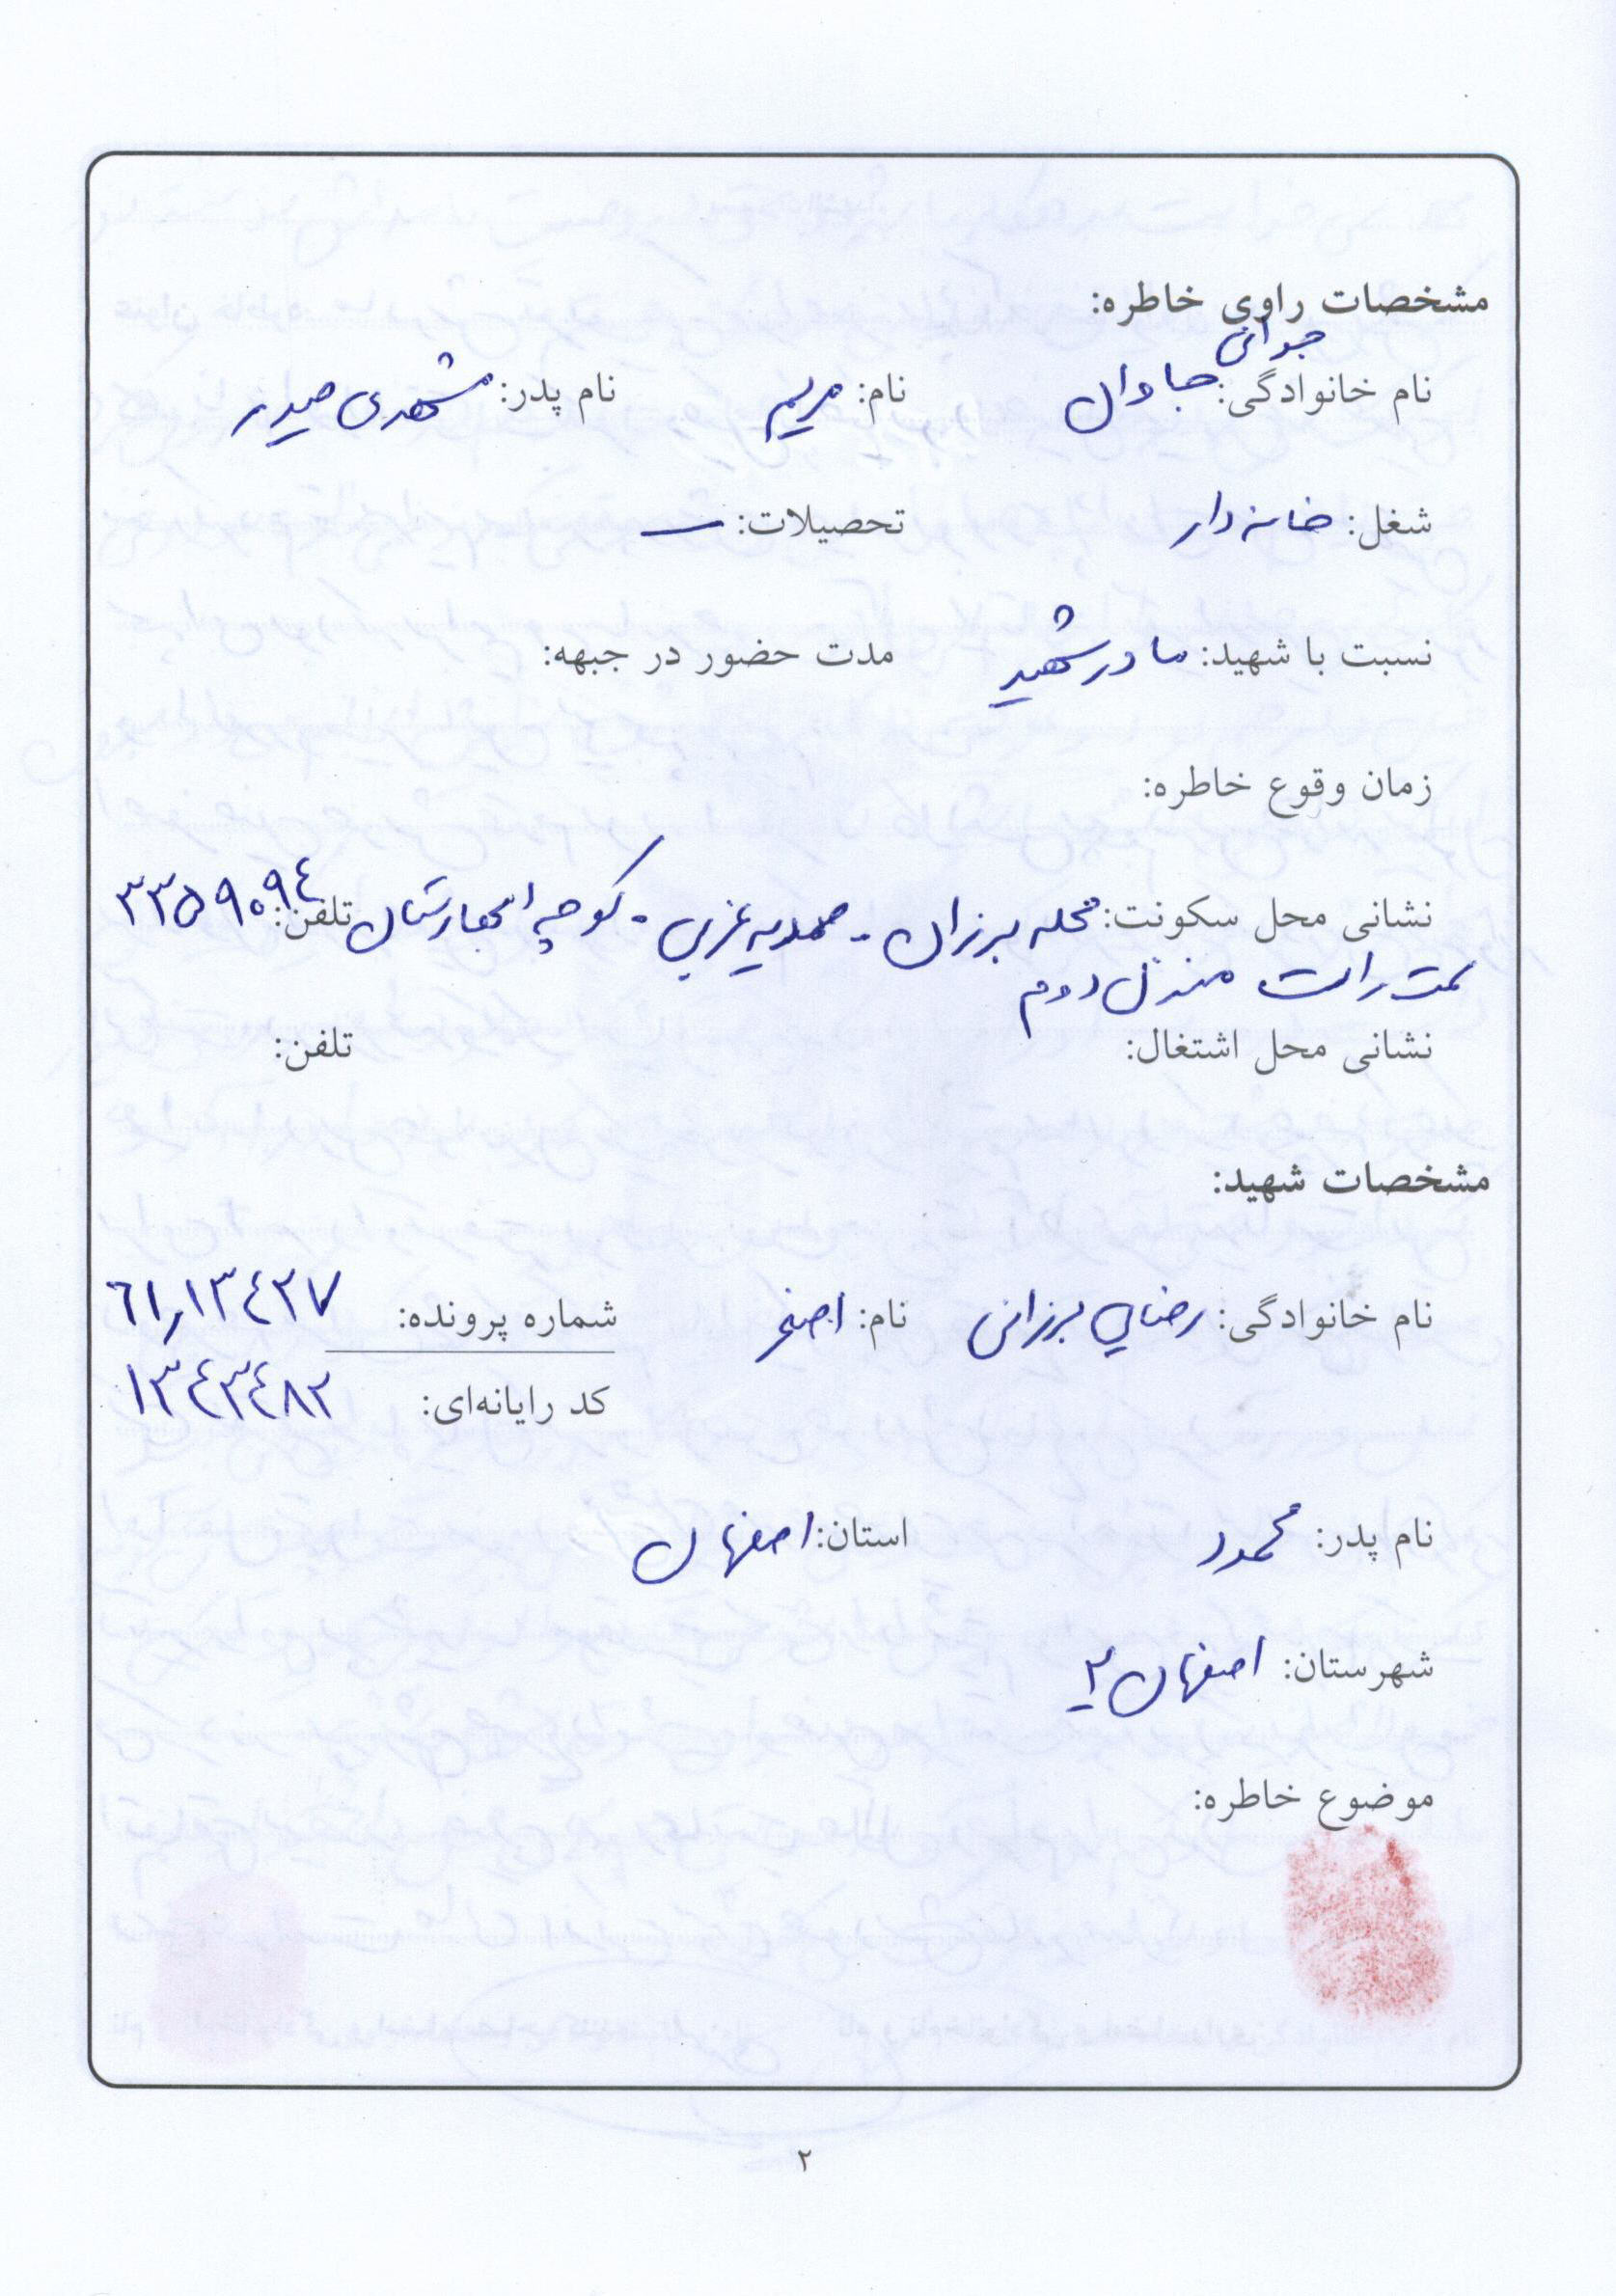 مشخصات راوی خاطره:
جوانی
نام خانوادگی: جاوان نام: مریم نام پدر: مشهدی حیدر
شغل: خانه دار تحصیلات: ـــ
نسبت با شهید: مادر شهید مدت حضور در جبهه:
زمان وقوع خاطره:
نشانی محل سکونت: محله برزان - صمدیه غربی - کوچه انجارستان تلفن: ۳۳۵۹۰۹۴
سمت راست منزل دوم
نشانی محل اشتغال: تلفن:
مشخصات شهید:
نام خانوادگی: رضایی برزانی نام: اصغر شماره پرونده: ۶۱٫۱۳۴۲۷
کد رایانه‌ای: ۱۳۴۳۴۸۲
نام پدر: محمود استان: اصفهان
شهرستان: اصفهان ۲
موضوع خاطره:
۲